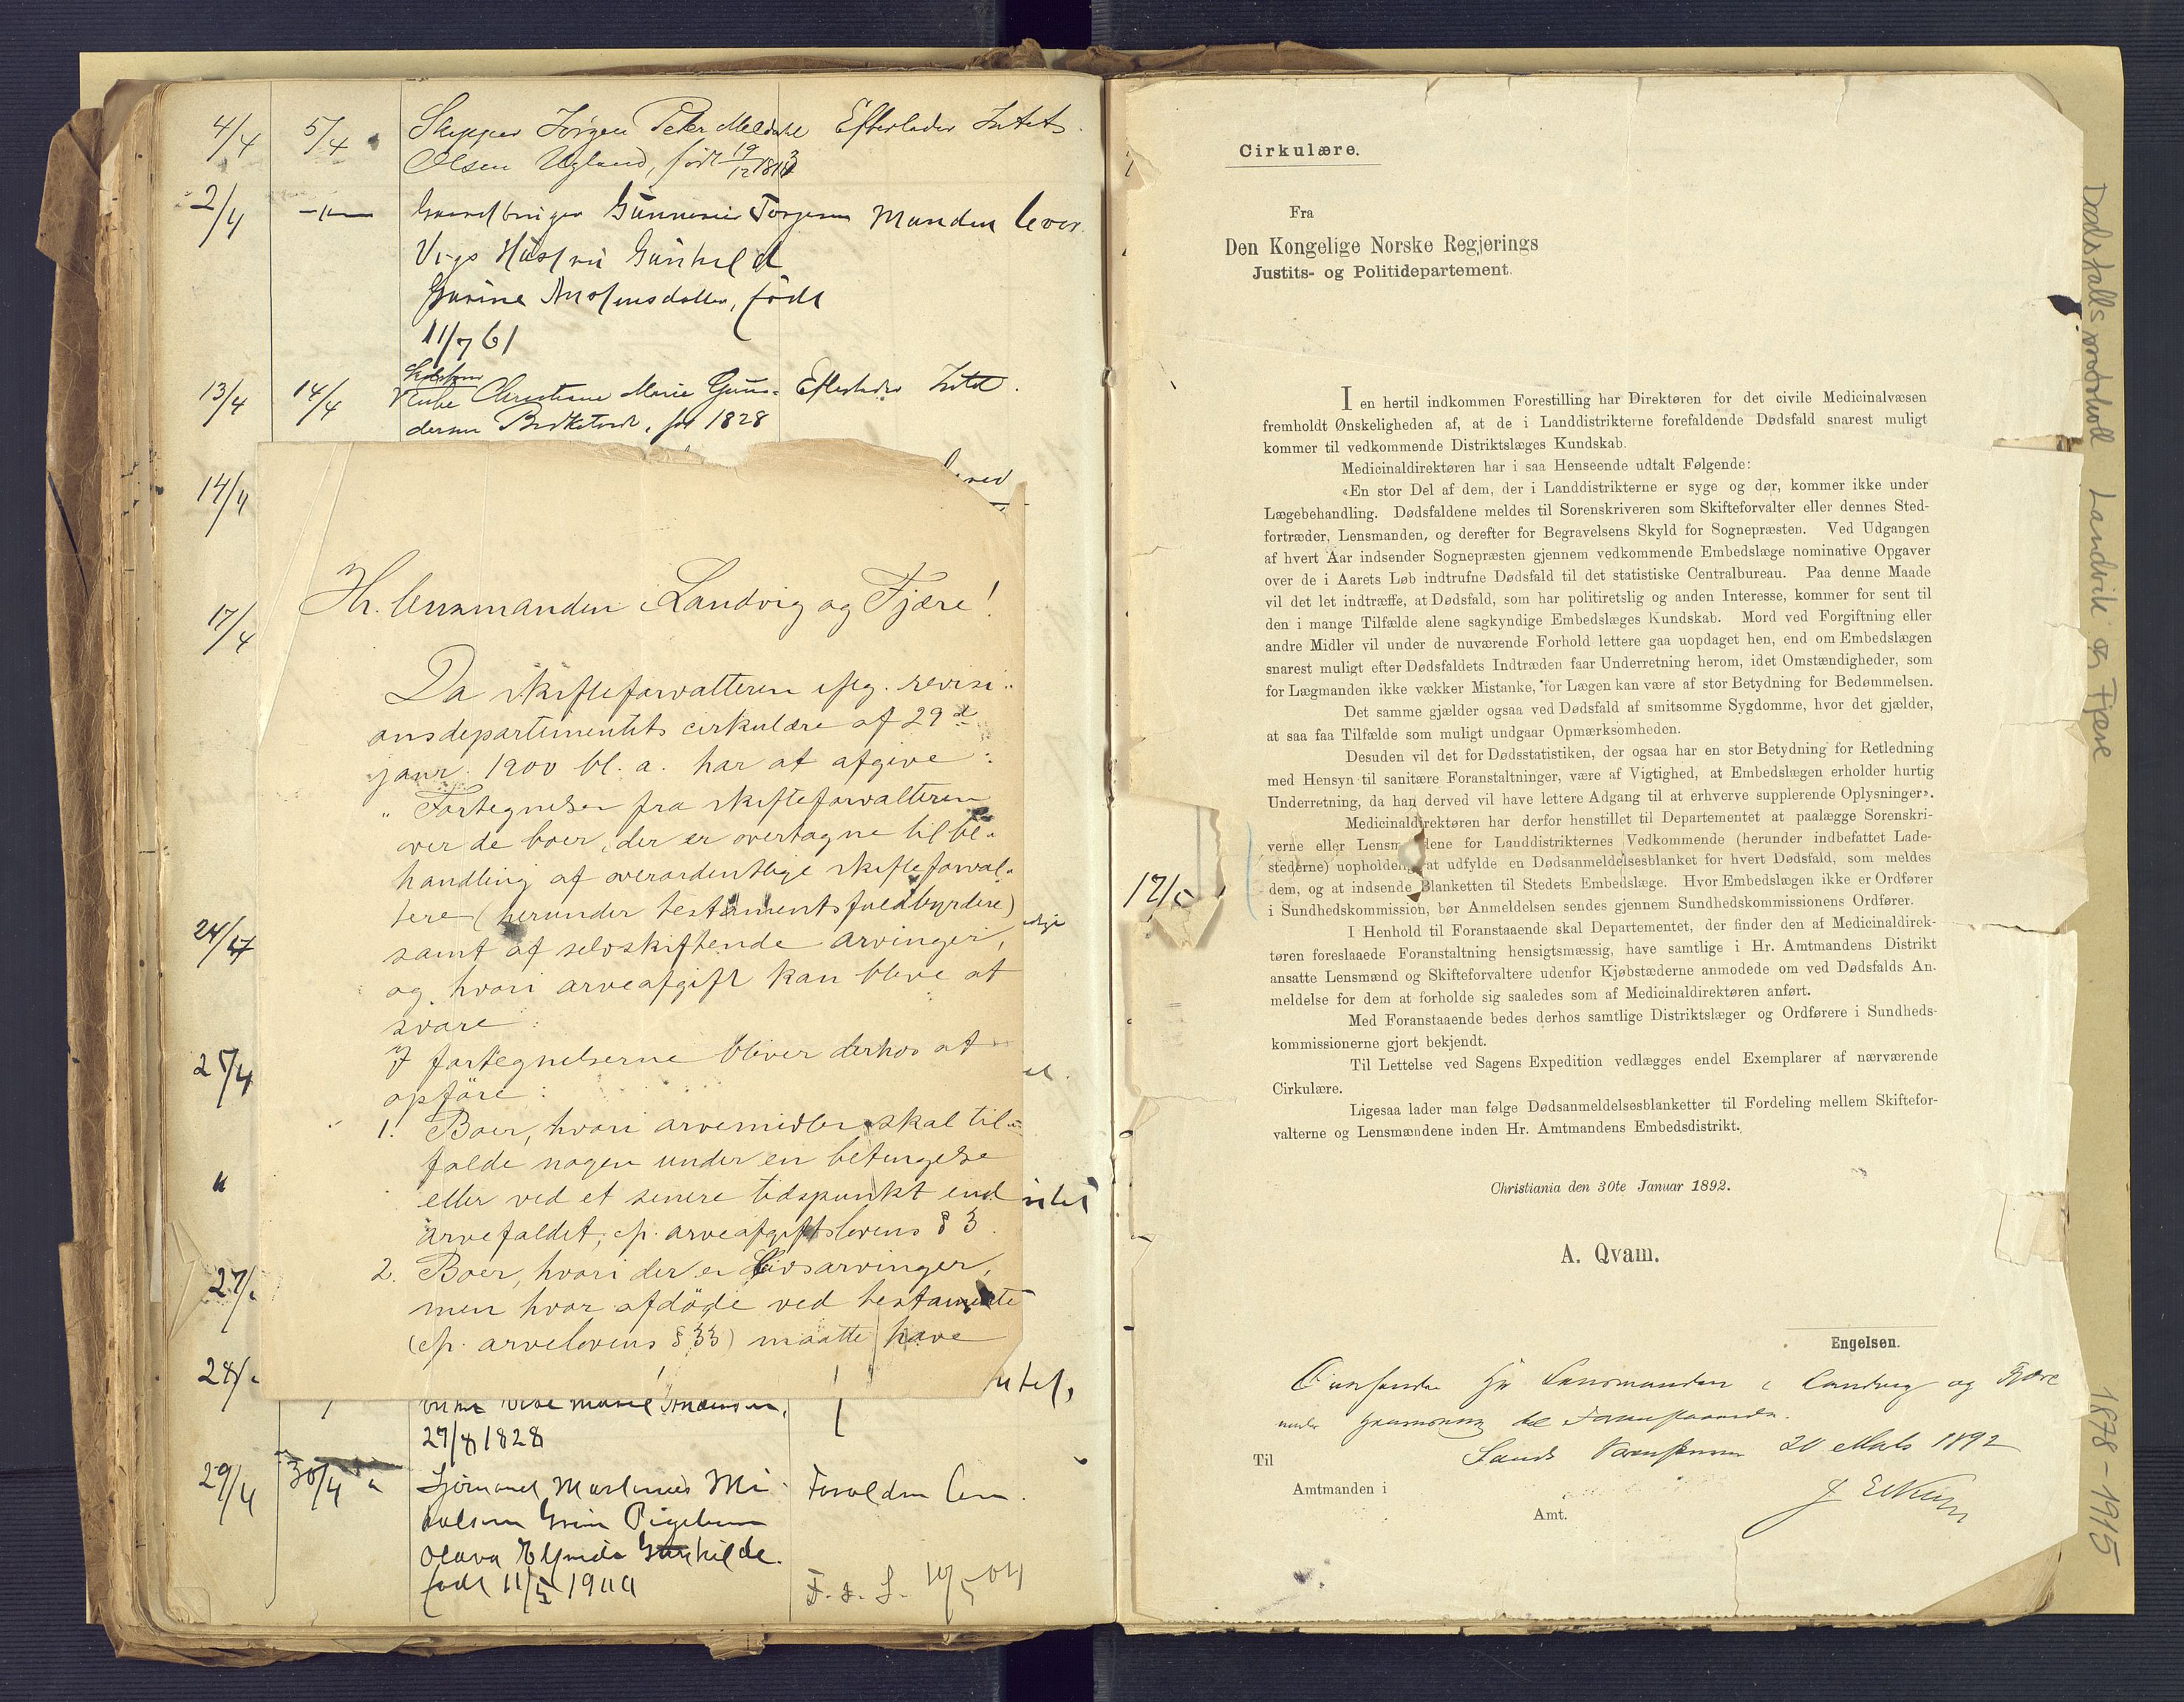 4/4 5/4 Skipper Jörgen Peter Meldahl Efterlader Intet.
Olsen Ugland, födt 19/12 1813
2/4 Gaardbruger Gunnerius Torjesen Manden lever.
Vigs Hustru Gunhild
födt
11/7 61
13/4 14/4 Enke Christiane Marie Gun- Efterlader Intet.
dersen, föd 1828
14/4
17/4
24/4
25/4
"
27/
28/
Hr. lensmanden i Landvig og Fjære!
Da skifteforvalteren iflg. revisi-
onsdepartementets cirkulære af 29de
janr. 1900 bl. a. har at afgive:
"Fortegnelser fra skifteforvalteren
over de boer, der er overtagne til be-
handling af overordentlige skifteforval-
tere (herunder testamentsfuldbyrdere)
samt af selvskiftende arvinger,
og hvori arveafgift kan blive at
svare:
I fortegnelserne bliver derhos at
opføre:
1. Boer, hvori arvemidler skal til-
falde nogen under en betingelse
eller ved et senere tidspunkt end
arvefaldet, cfr. arveafgiftslovens § 3.
2. Boer, hvori der er Livsarvinger,
men hvor afdöde ved testamente
(cfr. arvelovens § 33) maatte have
27/8 1828
29/4 30/4 Sjömand Martinus Mi-
Forældre lev.
kalsen Pigebarn
Olava Gunhilde.
født 11/
F. s. L. 10/5 04
Cirkulære.
Fra
Den Kongelige Norske Regjerings
Justits- og Politidepartement.
I en hertil indkommen Forestilling har Direktøren for det civile Medicinalvæsen
fremholdt Ønskeligheden af, at de i Landdistrikterne forefaldende Dødsfald snarest muligt
kommer til vedkommende Distriktslæges Kundskab.
Medicinaldirektøren har i saa Henseende udtalt Følgende:
«En stor Del af dem, der i Landdistrikterne er syge og dør, kommer ikke under
Lægebehandling. Dødsfaldene meldes til Sorenskriveren som Skifteforvalter eller dennes Sted-
fortræder, Lensmanden, og derefter for Begravelsens Skyld for Sognepræsten. Ved Udgangen
af hvert Aar indsender Sognepræsten gjennem vedkommende Embedslæge nominative Opgaver
over de i Aarets Løb indtrufne Dødsfald til det statistiske Centralbureau. Paa denne Maade
vil det let indtræffe, at Dødsfald, som har politiretslig og anden Interesse, kommer for sent til
den i mange Tilfælde alene sagkyndige Embedslæges Kundskab. Mord ved Forgiftning eller
andre Midler vil under de nuværende Forhold lettere gaa uopdaget hen, end om Embedslægen
snarest muligt efter Dødsfaldets Indtræden faar Underretning herom, idet Omstændigheder, som
for Lægmanden ikke vækker Mistanke, for Lægen kan være af stor Betydning for Bedømmelsen.
Det samme gjælder ogsaa ved Dødsfald af smitsomme Sygdomme, hvor det gjælder,
at saa faa Tilfælde som muligt undgaar Opmærksomheden.
Desuden vil det for Dødsstatistiken, der ogsaa har en stor Betydning for Retledning
med Hensyn til sanitære Foranstaltninger, være af Vigtighed, at Embedslægen erholder hurtig
Underretning, da han derved vil have lettere Adgang til at erhverve supplerende Oplysninger».
Medicinaldirektøren har derfor henstillet til Departementet at paalægge Sorenskri-
verne eller Lensmændene for Landdistrikternes Vedkommende (herunder indbefattet Lade-
stederne) uopholdelig at udfylde en Dødsanmeldelsesblanket for hvert Dødsfald, som meldes
dem, og at indsende Blanketten til Stedets Embedslæge. Hvor Embedslægen ikke er Ordfører
i Sundhedskommission, bør Anmeldelsen sendes gjennem Sundhedskommissionens Ordfører.
I Henhold til Foranstaaende skal Departementet, der finder den af Medicinaldirek-
tøren foreslaaede Foranstaltning hensigtsmæssig, have samtlige i Hr. Amtmandens Distrikt
ansatte Lensmænd og Skifteforvaltere udenfor Kjøbstæderne anmodede om ved Dødsfalds An-
meldelse for dem at forholde sig saaledes som af Medicinaldirektøren anført.
Med Foranstaaende bedes derhos samtlige Distriktslæger og Ordførere i Sundheds-
kommissionerne gjort bekjendt.
Til Lettelse ved Sagens Expedition vedlægges endel Exemplarer af nærværende
Cirkulære.
Ligesaa lader man følge Dødsanmeldelsesblanketter til Fordeling mellem Skiftefor-
valterne og Lensmændene inden Hr. Amtmandens Embedsdistrikt.
Christiania den 30te Januar 1892.
A. Qvam.
Engelsen.
Oversendes Hr Lensmanden i Landvig og Fjære
under Foranstaaende.
Sands 20 Marts 1892
Til
Amtmanden i
Amt.
17/
Dødsfallsprotokoll Landvik og Fjære
1878-1915